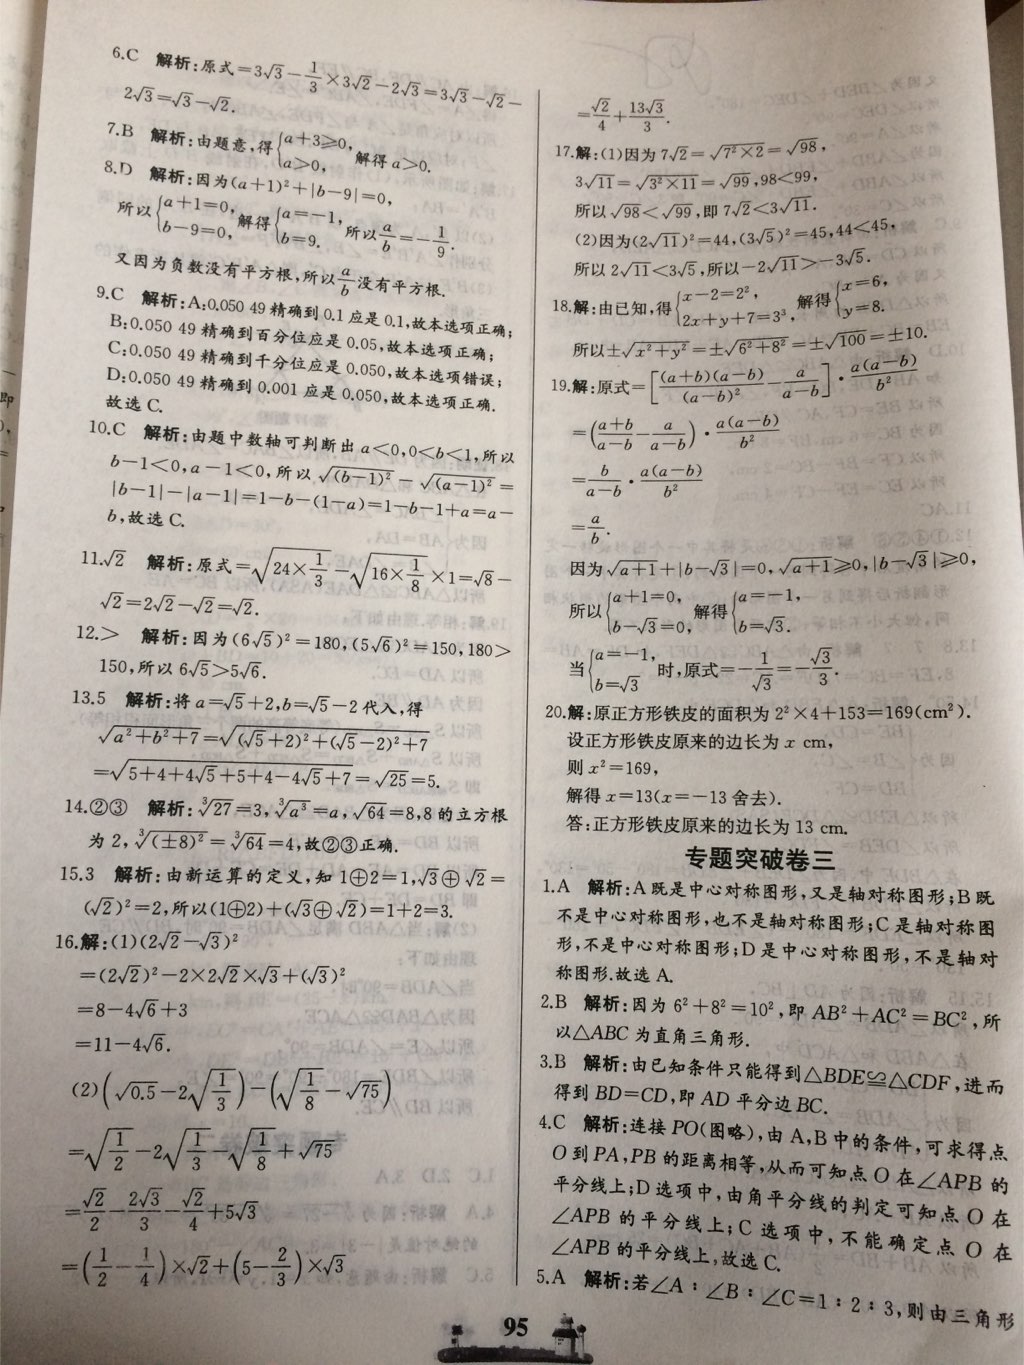 6.C 解析:原式=3√3-1/3×3√2-2√3=3√3-√2-
2√3=√3-√2.
7.B 解析:由题意,得{a+3≥0, a>0, 解得a>0.
8.D 解析:因为(a+1)²+|b-9|=0,
所以{a+1=0, b-9=0, 解得{a=-1, b=9. 所以a/b=-1/9.
又因为负数没有平方根,所以a/b没有平方根.
9.C 解析:A:0.050 49精确到0.1应是0.1,故本选项正确;
B:0.050 49精确到百分位应是0.05,故本选项正确;
C:0.050 49精确到千分位应是0.050,故本选项错误;
D:0.050 49精确到0.001应是0.050,故本选项正确.
故选C.
10.C 解析:由题中数轴可判断出a<0,0<b<1,所以
b-1<0,a-1<0,所以√(b-1)²-√(a-1)²=
|b-1|-|a-1|=1-b-(1-a)=1-b-1+a=a-
b,故选C.
11.√2 解析:原式=√(24×1/3)-√(16×1/8)×1=√8-
√2=2√2-√2=√2.
12.> 解析:因为(6√5)²=180,(5√6)²=150,180>
150,所以6√5>5√6.
13.5 解析:将a=√5+2,b=√5-2代入,得
√(a²+b²+7)=√((√5+2)²+(√5-2)²+7)
=√(5+4+4√5+5+4-4√5+7)=√25=5.
14.②③ 解析:³√27=3,³√a³=a,√64=8,8的立方根
为2,³√(±8)²=³√64=4,故②③正确.
15.3 解析:由新运算的定义,知1⊕2=1,√3⊕√2=
(√2)²=2,所以(1⊕2)+(√3⊕√2)=1+2=3.
16.解:(1)(2√2-√3)²
=(2√2)²-2×2√2×√3+(√3)²
=8-4√6+3
=11-4√6.
(2)(√0.5-2√(1/3))-(√(1/8)-√75)
=√(1/2)-2√(1/3)-√(1/8)+√75
=√2/2-2√3/3-√2/4+5√3
=(1/2-1/4)×√2+(5-2/3)×√3
=√2/4+13√3/3.
17.解:(1)因为7√2=√(7²×2)=√98,
3√11=√(3²×11)=√99,98<99,
所以√98<√99,即7√2<3√11.
(2)因为(2√11)²=44,(3√5)²=45,44<45,
所以2√11<3√5,所以-2√11>-3√5.
18.解:由已知,得{x-2=2², 2x+y+7=3³, 解得{x=6, y=8.
所以±√(x²+y²)=±√(6²+8²)=±√100=±10.
19.解:原式=[(a+b)(a-b)/(a-b)²-a/(a-b)]·a(a-b)/b²
=((a+b)/(a-b)-a/(a-b))·a(a-b)/b²
=b/(a-b)·a(a-b)/b²
=a/b.
因为√(a+1)+|b-√3|=0,√(a+1)≥0,|b-√3|≥0,
所以{a+1=0, b-√3=0, 解得{a=-1, b=√3.
当{a=-1, b=√3 时,原式=-1/√3=-√3/3.
20.解:原正方形铁皮的面积为2²×4+153=169(cm²).
设正方形铁皮原来的边长为x cm,
则x²=169,
解得x=13(x=-13舍去).
答:正方形铁皮原来的边长为13 cm.
专题突破卷三
1.A 解析:A既是中心对称图形,又是轴对称图形;B既
不是中心对称图形,也不是轴对称图形;C是轴对称图
形,不是中心对称图形;D是中心对称图形,不是轴对
称图形.故选A.
2.B 解析:因为6²+8²=10²,即AB²+AC²=BC²,所
以△ABC为直角三角形.
3.B 解析:由已知条件只能得到△BDE≌△CDF,进而
得到BD=CD,即AD平分边BC.
4.C 解析:连接PO(图略),由A,B中的条件,可求得点
O到PA,PB的距离相等,从而可知点O在∠APB的
平分线上;D选项中,由角平分线的判定可知点O在
∠APB的平分线上;C选项中,不能确定点O在
∠APB的平分线上,故选C.
5.A 解析:若∠A∶∠B∶∠C=1∶2∶3,则由三角形
95